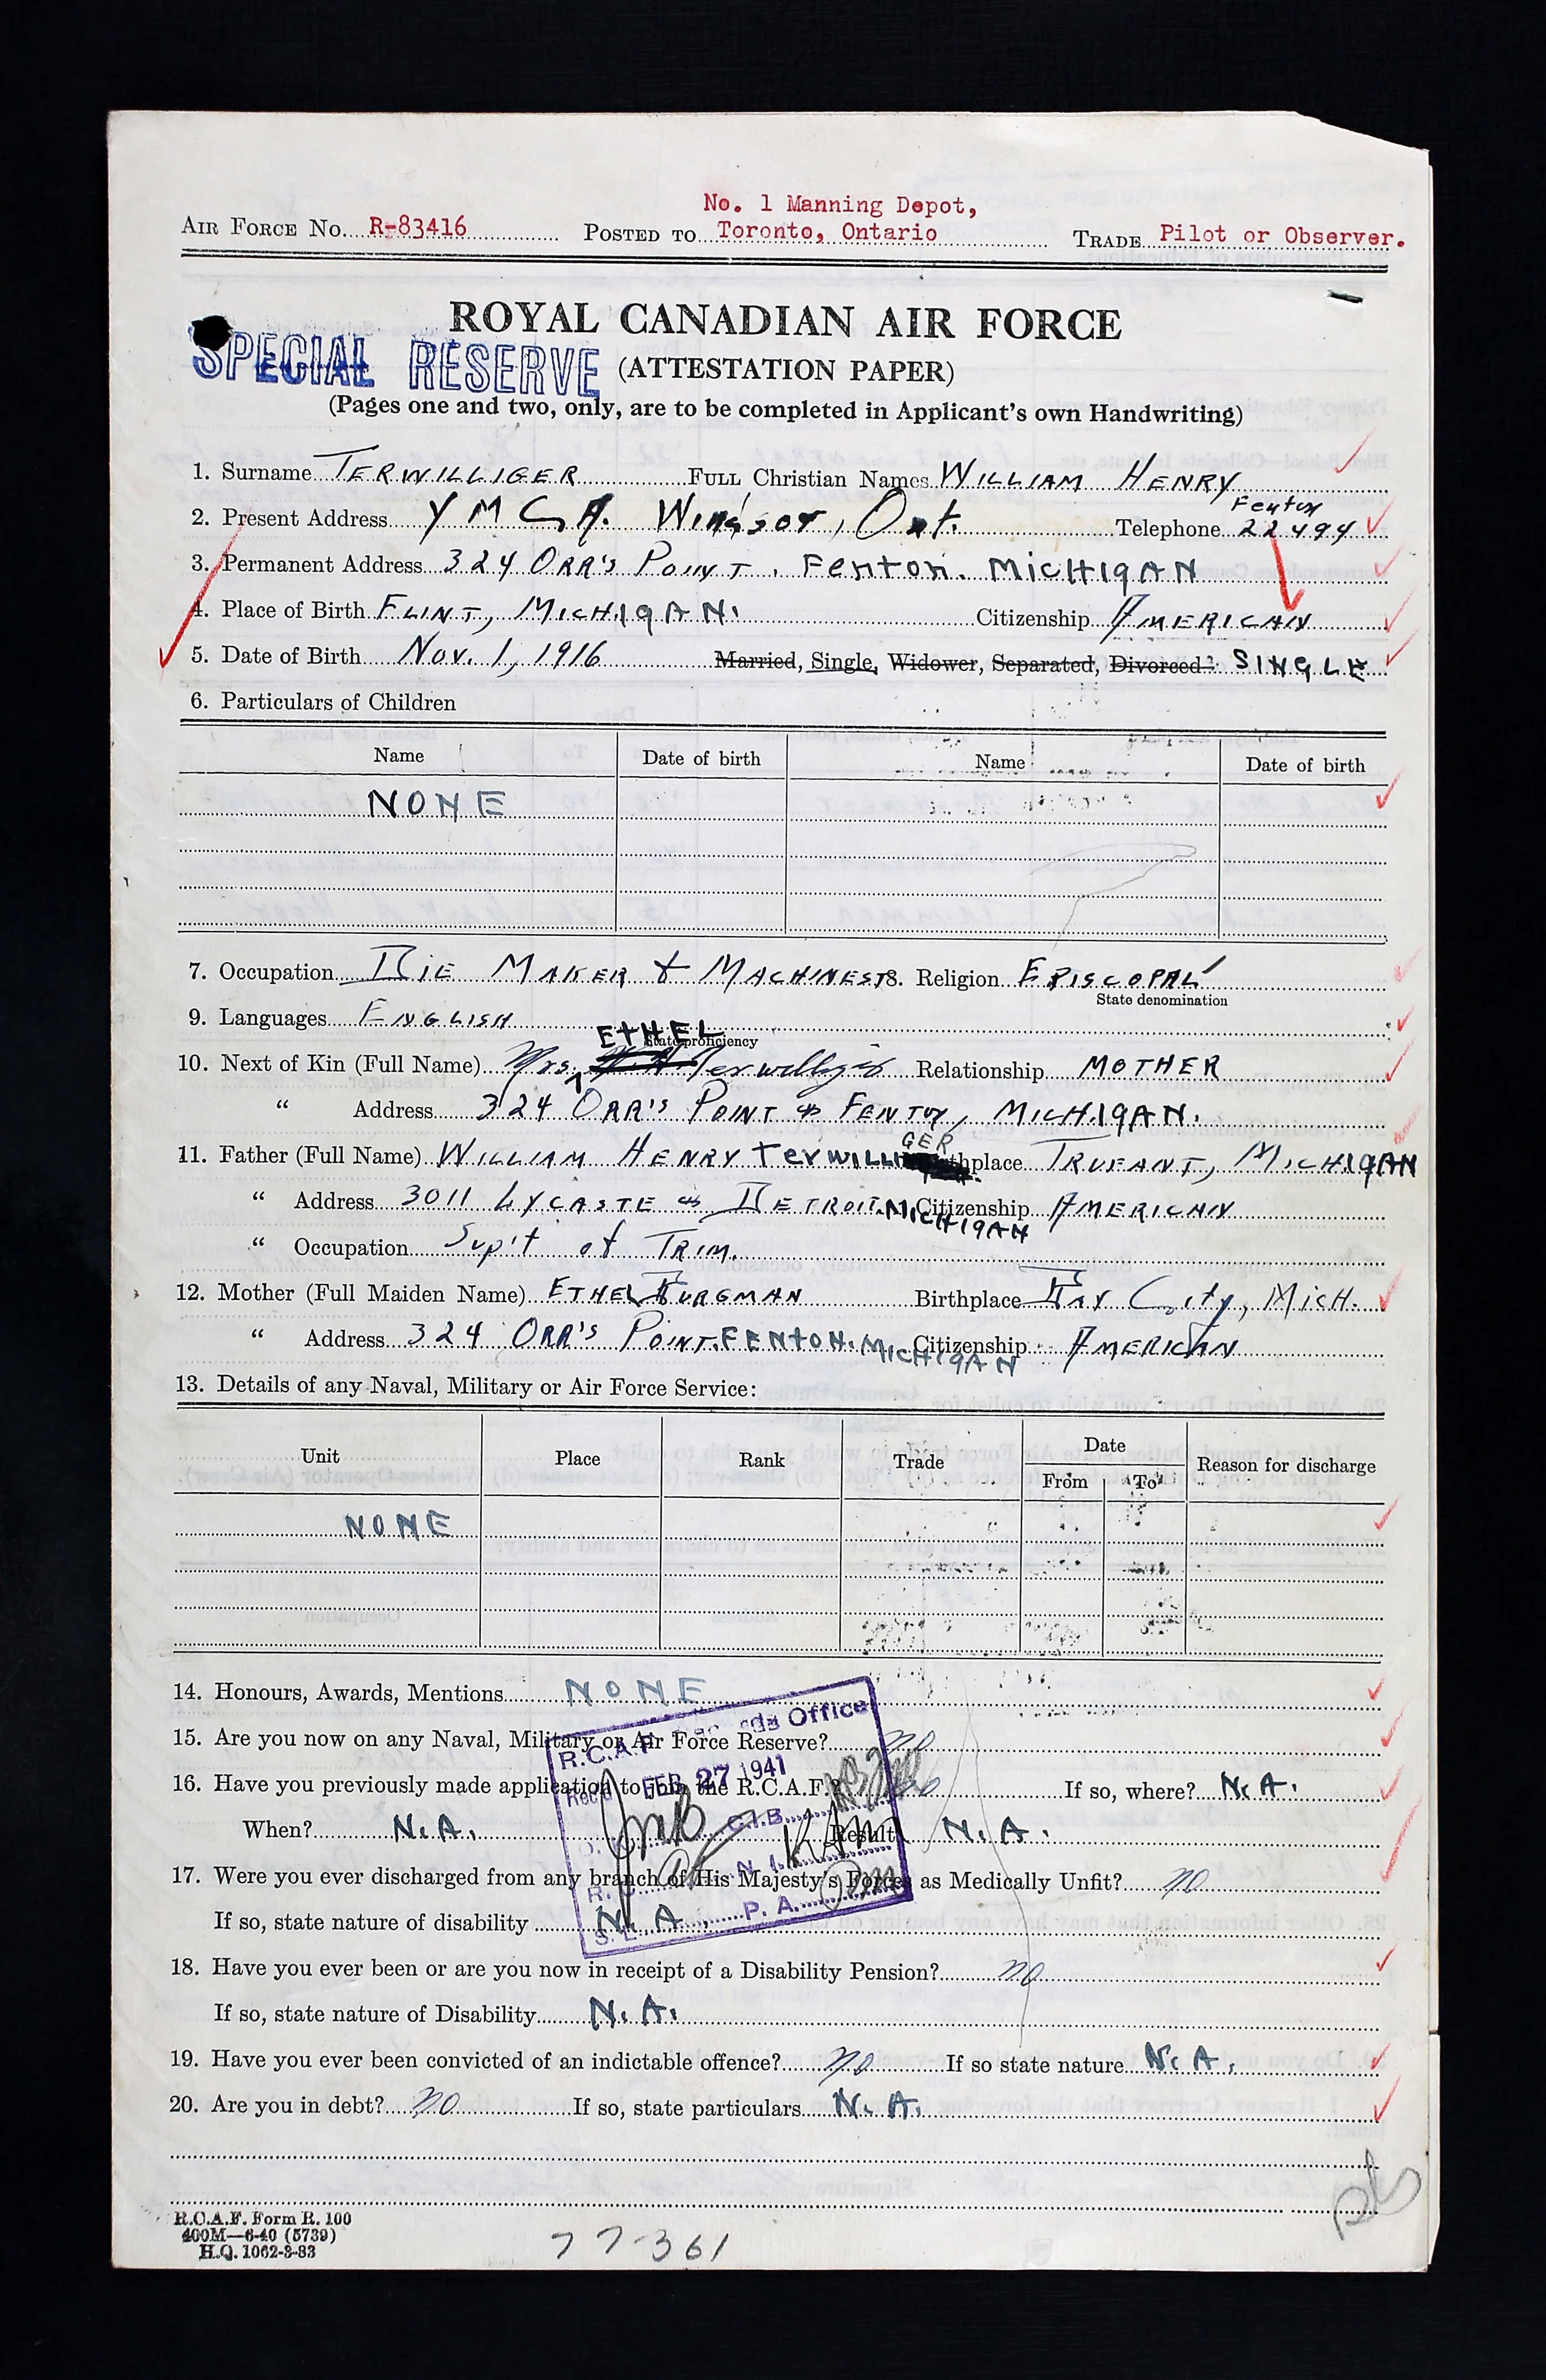 No. 1 Manning Depot,
AIR FORCE NO. R-83416 POSTED TO Toronto, Ontario TRADE Pilot or Observer.
ROYAL CANADIAN AIR FORCE
SPECIAL RESERVE (ATTESTATION PAPER)
(Pages one and two, only, are to be completed in Applicant's own Handwriting)
1. Surname TERWILLIGER FULL Christian Names WILLIAM HENRY
Fenton
2. Present Address YMCA. Windsor, Ont. Telephone 22494
3. Permanent Address 324 ORR'S POINT. FENTON. MICHIGAN
4. Place of Birth FLINT, MICHIGAN. Citizenship AMERICAN
5. Date of Birth Nov. 1, 1916 Married, Single, Widower, Separated, Divorced? SINGLE
6. Particulars of Children
Name Date of birth Name Date of birth
NONE
7. Occupation DIE MAKER & MACHINEST 8. Religion EPISCOPAL
State denomination
9. Languages ENGLISH
ETHEL State proficiency
10. Next of Kin (Full Name) Mrs. Terwilliger Relationship MOTHER
" Address 324 ORR'S POINT FENTON, MICHIGAN.
GER
11. Father (Full Name) WILLIAM HENRY TERWILLI Birthplace TRUFANT, MICHIGAN
" Address 3011 LYCASTE DETROIT. MICHIGAN Citizenship AMERICAN
" Occupation Sup't of TRIM.
12. Mother (Full Maiden Name) ETHEL BURGMAN Birthplace BAY City, MICH.
" Address 324 ORR'S POINT. FENTON. MICHIGAN Citizenship AMERICAN
13. Details of any Naval, Military or Air Force Service:
Unit Place Rank Trade Date Reason for discharge
From To
NONE
14. Honours, Awards, Mentions NONE
R.C.A.F. Records Office
15. Are you now on any Naval, Military or Air Force Reserve? no
Rec'd FEB 27 1941
16. Have you previously made application to join the R.C.A.F.? no If so, where? N.A.
C.I.B.
When? N.A. Result N.A.
N.I.
17. Were you ever discharged from any branch of His Majesty's Forces as Medically Unfit? no
R.
P.A.
If so, state nature of disability N.A.
S.
18. Have you ever been or are you now in receipt of a Disability Pension? no
If so, state nature of Disability N.A.
19. Have you ever been convicted of an indictable offence? no If so state nature N.A.
20. Are you in debt? no If so, state particulars N.A.
R.C.A.F. Form R. 100
400M—6-40 (5739)
H.Q. 1062-3-83
77-361